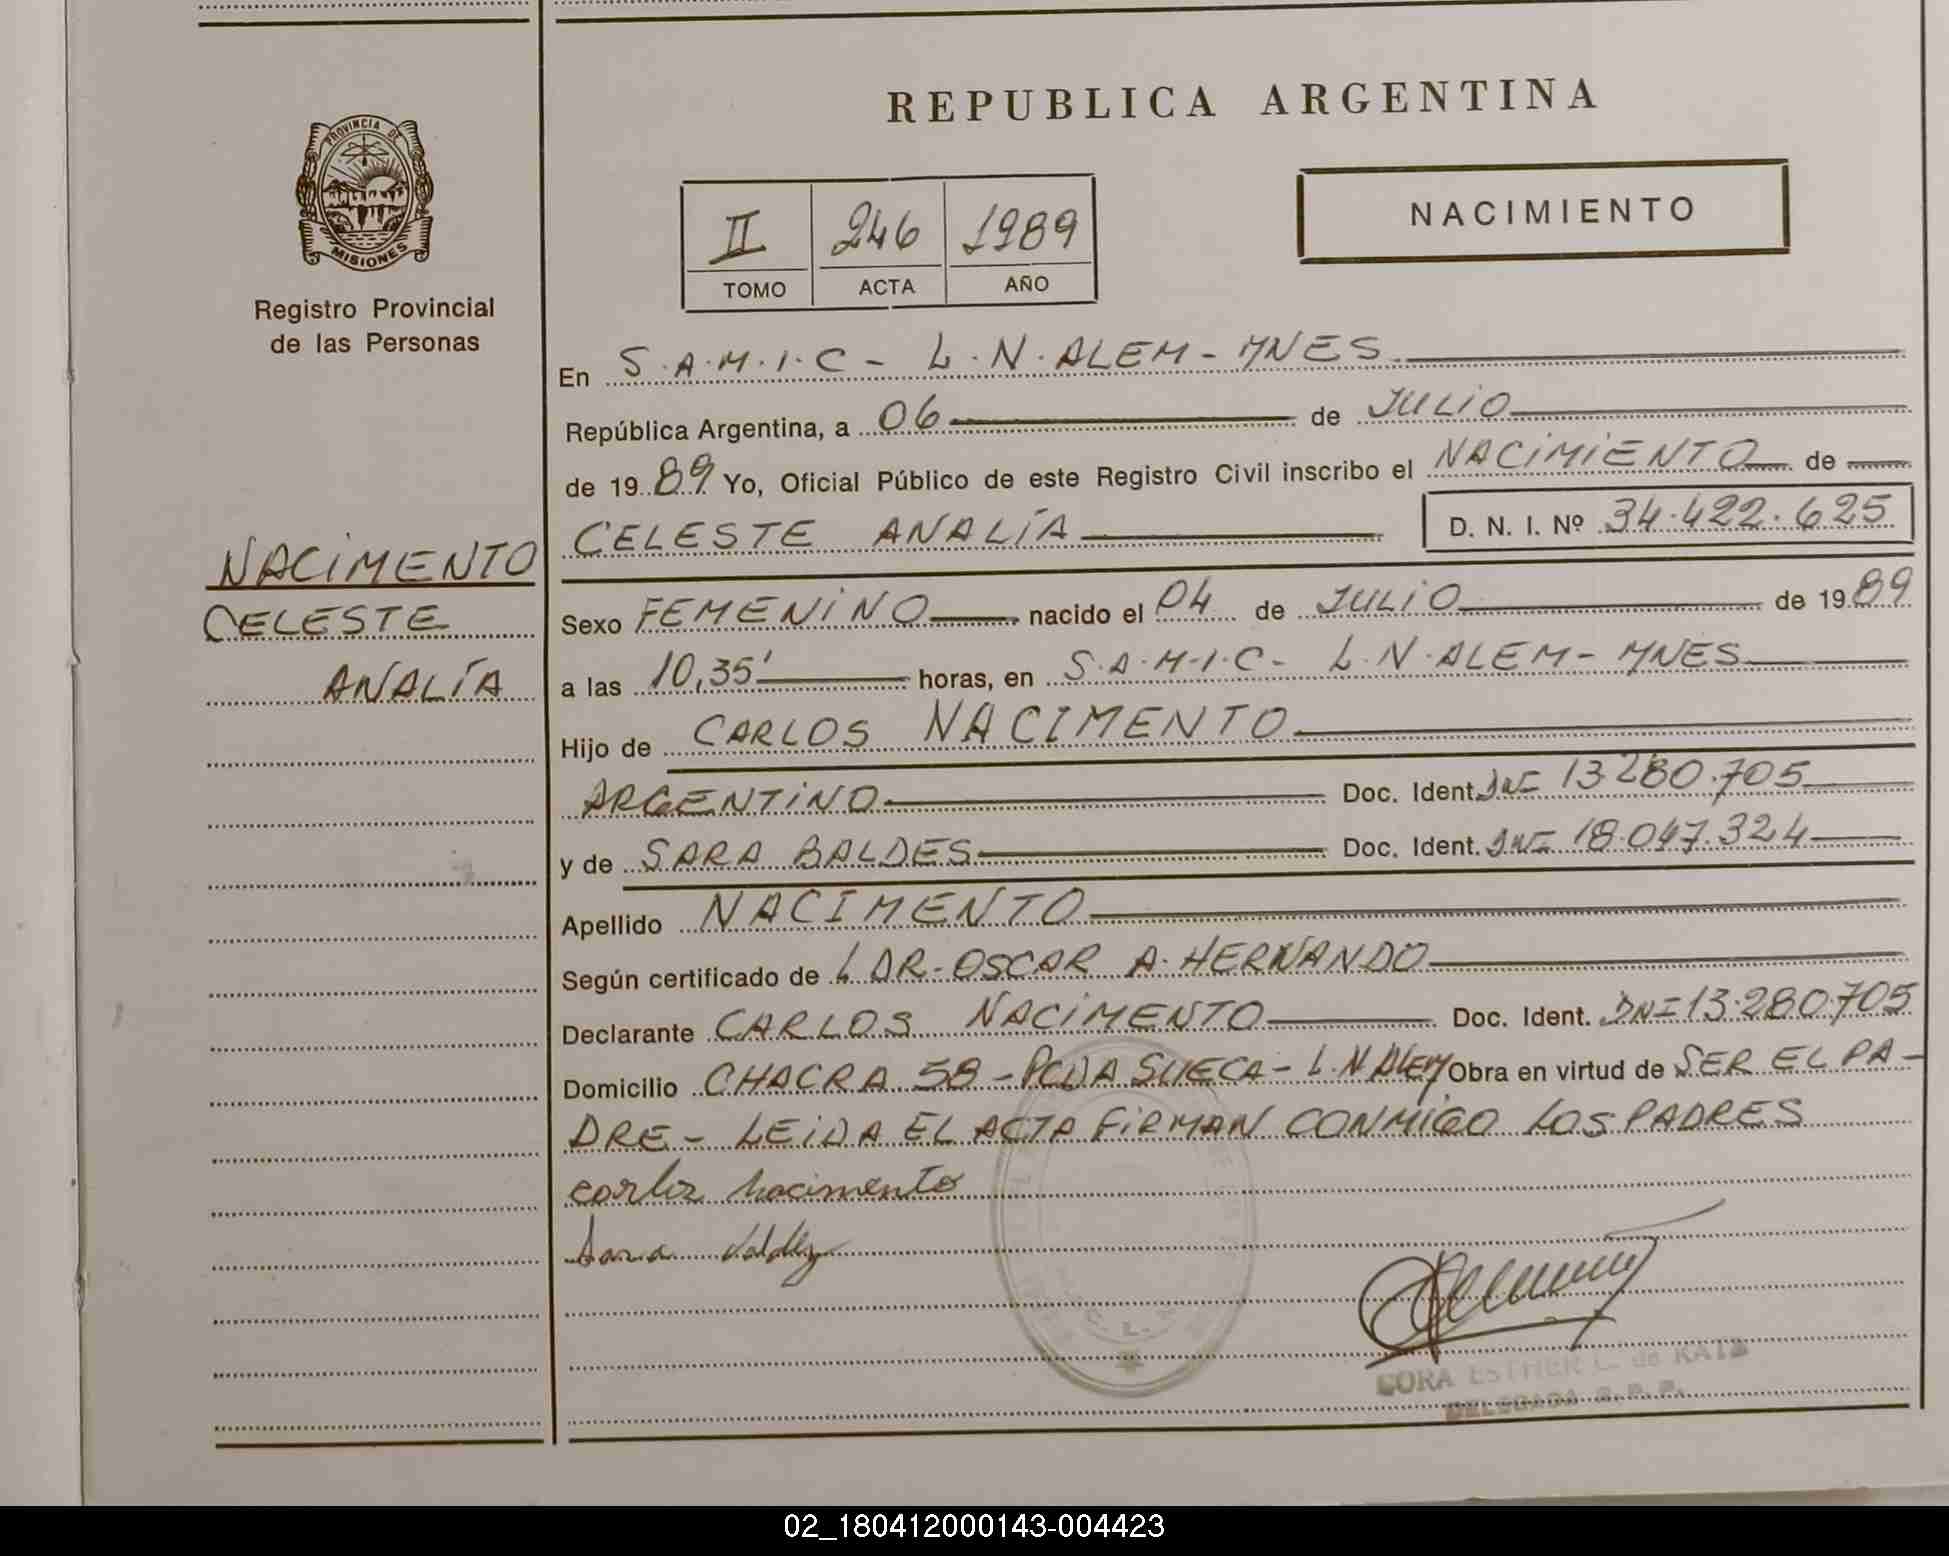 REPUBLICA ARGENTINA
PROVINCIA DE
MISIONES
Registro Provincial
de las Personas
II 246 1989
TOMO ACTA AÑO
NACIMIENTO
NACIMENTO
CELESTE
ANALÍA
En S.A.M.I.C - L.N.ALEM - MNES
República Argentina, a 06 de JULIO
de 1989 Yo, Oficial Público de este Registro Civil inscribo el NACIMIENTO de
CELESTE ANALÍA D. N. I. Nº 34.422.625
Sexo FEMENINO nacido el 04 de JULIO de 1989
a las 10,35' horas, en S.A.M.I.C - L.N.ALEM - MNES
Hijo de CARLOS NACIMENTO
ARGENTINO Doc. Ident. DNI 13.280.705
y de SARA BALDES Doc. Ident. DNI 18.047.324
Apellido NACIMENTO
Según certificado de L DR. OSCAR A. HERNANDO
Declarante CARLOS NACIMENTO Doc. Ident. DNI 13.280.705
Domicilio CHACRA 58 - PCDA SUECA - L.N ALEM Obra en virtud de SER EL PA-
DRE - LEIDA EL ACTA FIRMAN CONMIGO LOS PADRES
carlos nacimento
Sara Valdez
ESTHER L. de KATZ
DELEGADA R. P. P.
02_180412000143-004423